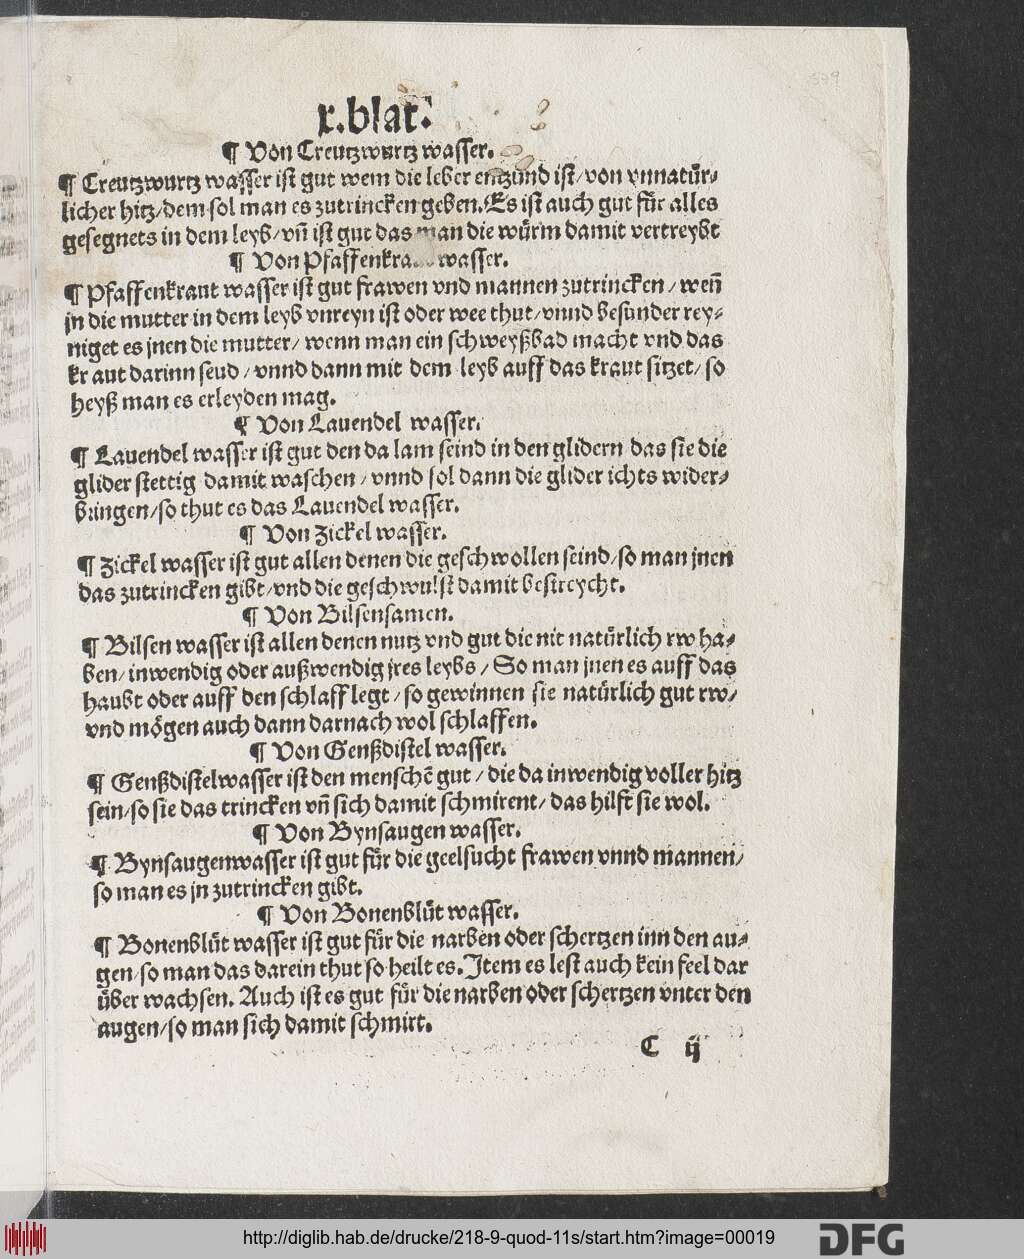 x.blat.
¶ Von Creutzwurtz wasser.
¶ Creutzwurtz wasser ist gut wem die leber entzünd ist/von vnnatür⸗
licher hitz/dem sol man es zutrincken geben. Es ist auch gut für alles
gesegnets in dem leyb/vñ ist gut das man die würm damit vertreybt
¶ Von Pfaffenkra wasser.
¶ Pfaffenkraut wasser ist gut frawen vnd mannen zutrincken/weñ
jn die mutter in dem leyb vnreyn ist oder wee thut/vnnd besunder rey⸗
niget es jnen die mutter/wenn man ein schweyßbad macht vnd das
kraut darinn seud/vnnd dann mit dem leyb auff das kraut sitzet/so
heyß man es erleyden mag.
¶ Von Lauendel wasser.
¶ Lauendel wasser ist gut den da lam seind in den glidern das sie die
glider stettig damit waschen/vnnd sol dann die glider ichts wider⸗
bringen/so thut es das Lauendel wasser.
¶ Von Zickel wasser.
¶ Zickel wasser ist gut allen denen die geschwollen seind/so man jnen
das zutrincken gibt/vnd die geschwulst damit bestreycht.
¶ Von Bilsensamen.
¶ Bilsen wasser ist allen denen nutz vnd gut die nit natürlich rw ha⸗
ben/inwendig oder außwendig jres leybs/So man jnen es auff das
haubt oder auff den schlaff legt/so gewinnen sie natürlich gut rw/
vnd mögen auch dann darnach wol schlaffen.
¶ Von Genßdistel wasser.
¶ Genßdistelwasser ist den menschẽ gut/die da inwendig voller hitz
sein/so sie das trincken vñ sich damit schmirent/das hilft sie wol.
¶ Von Bynsaugen wasser.
¶ Bynsaugenwasser ist gut für die geelsucht frawen vnnd mannen/
so man es jn zutrincken gibt.
¶ Von Bonenblüt wasser.
¶ Bonenblüt wasser ist gut für die narben oder schertzen inn den au⸗
gen/so man das darein thut so heilt es. Item es lest auch kein feel dar
über wachsen. Auch ist es gut für die narben oder schertzen vnter den
augen/so man sich damit schmirt.
C ij
http://diglib.hab.de/drucke/218-9-quod-11s/start.htm?image=00019
DFG